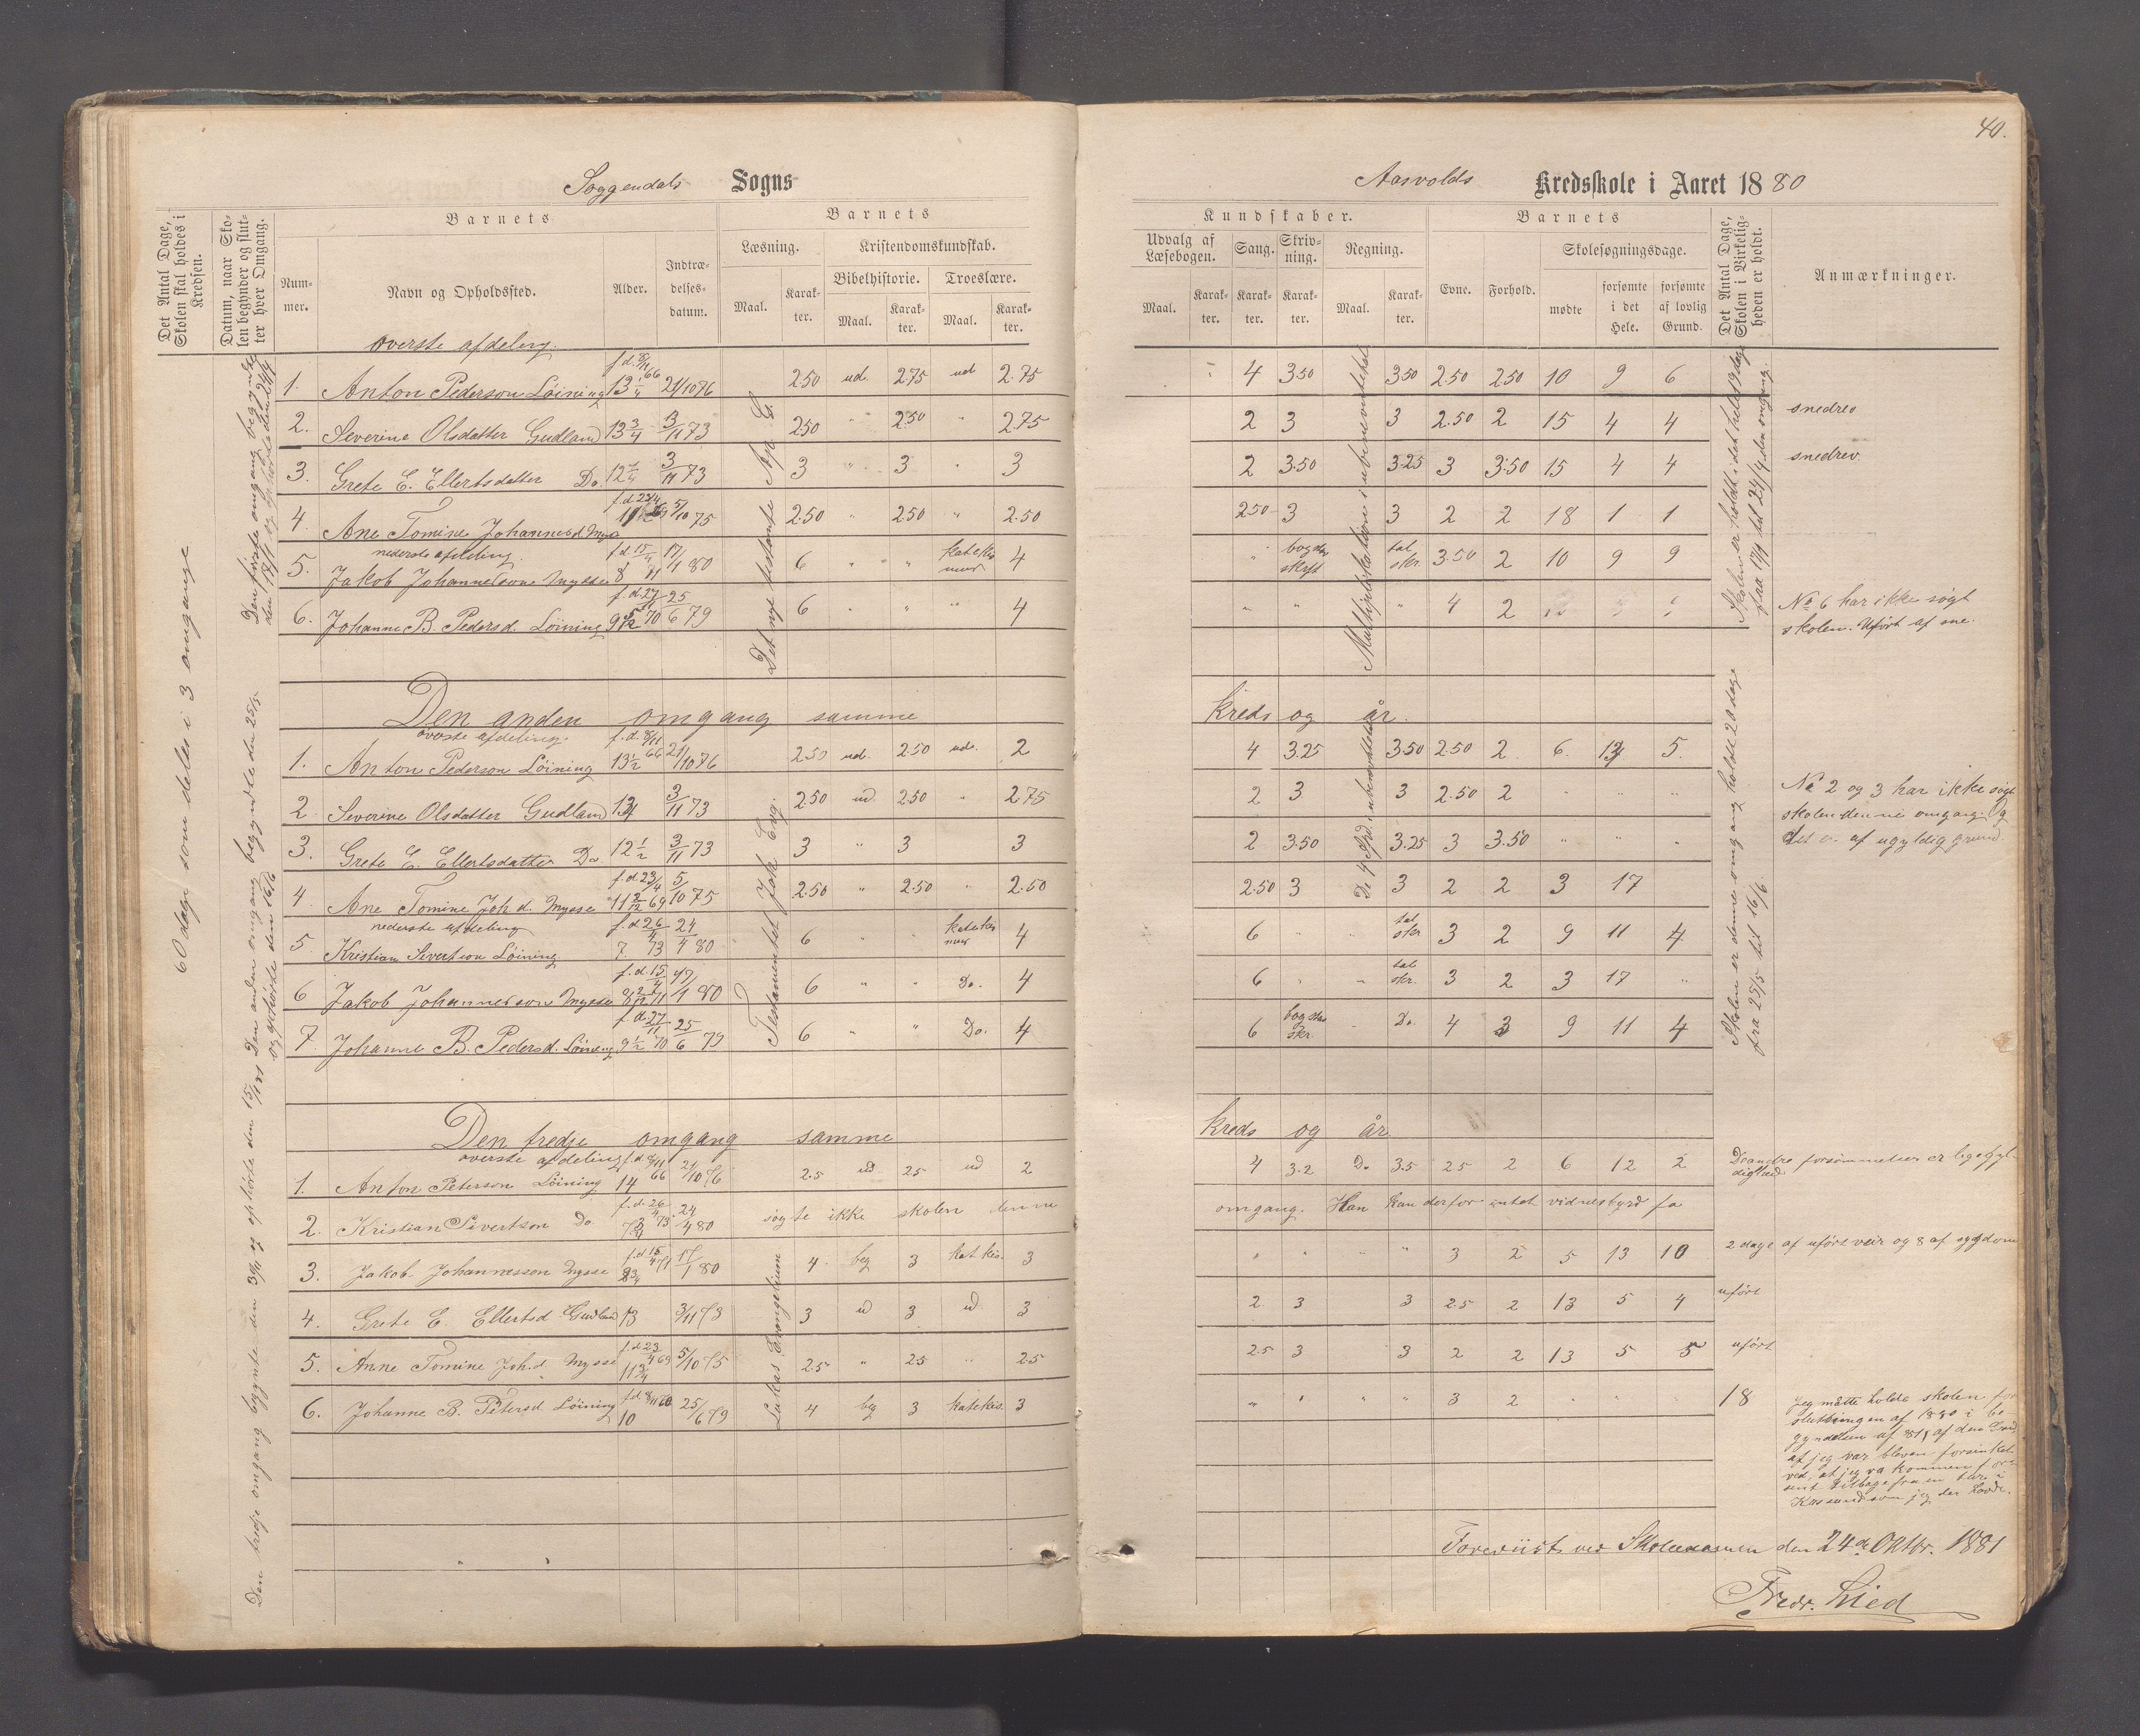 40.
Soggendals Sogns
Aasvolds Kredsskole i Aaret 1880
Det Antal Dage, Skolen skal holdes i Kredsen.
Datum, naar Skolen begynder og slutter hver Omgang.
Barnets
Nummer.
Navn og Opholdssted.
Alder.
Indtrædelsesdatum.
Barnets
Læsning.
Maal.
Karakter.
Kristendomskundskab.
Bibelhistorie.
Maal.
Karakter.
Troeslære.
Maal.
Karakter.
Kundskaber.
Udvalg af Læsebogen.
Maal.
Karakter.
Sang.
Karakter.
Skrivning.
Karakter.
Regning.
Maal.
Karakter.
Barnets
Evne.
Forhold.
Skolesøgningsdage.
mødte
forsømte i det Hele.
forsømte af lovlig Grund.
Det Antal Dage, Skolen i Virkeligheden er holdt.
Anmærkninger.
60 dage som deles i 3 omgange
øverste afdeling.
1. Anton Pederson Löining f.d. 8/11 66 21/10 76 2.50 ud. 2.75 ud 2.75 4 3.50 3.50 2.50 2.50 10 9 6
2. Severine Olsdatter Gudland 13 3/4 3/11 73 2.50 " 2.50 " 2.75 2 3 3 2.50 2 15 4 4 snedrev
3. Grete E. Ellertsdatter Do. 3/11 73 3 " 3 " 3 2 3.50 3.25 3 3.50 15 4 4 snedrev.
4. Ane Tomine Johannesd. f.d. 23/4 5/10 75 2.50 " 2.50 " 2.50 2.50 3 3 2 2 18 1 1
nederste afdeling.
5. Jakob Johannesson Mysse f.d. 15/4 17/1 80 6 " " 4 3.50 2 10 9 9
6. Johanne B. Pedersd. Löining f.d. 27/11 70 25/6 79 6 " " " 4 " " " 4 2
No 6 har ikke søgt
skolen. Uført af sne.
Det nye testamente Ap. G.
Den anden omgang samme kreds og år.
øverste afdeling.
1. Anton Pederson Löining f.d. 8/11 66 13 1/2 21/10 76 2.50 ud. 2.50 ud. 2 4 3.25 3.50 2.50 2 6. 5.
2 Severine Olsdatter Gudland 3/11 73 2.50 ud. 2.50 " 2.75 2 3 3 2.50 2 " " "
3. Grete E. Ellertsdatter Do. 12 1/2 3/11 73 3 " 3 3 2 3.50 3.25 3 3.50 " " "
No 2 og 3 har ikke søgt
skolen denne omgang. Og
det er af ugyldig grund.
4 Ane Tomine Joh.d. Mysse f.d. 23/4 69 5/10 75 2.50 " 2.50 " 2.50 2.50 3 3 2 2 3 17
nederste afdeling
5 Kristian Sivertson Löining. f.d. 26/4 73 7 24/4 80 6 " " 4 6 " " tal skr 3 2 9 11 4
6 Jakob Johannesson Mysse f.d. 15/4 71 17/1 80 6 " " Do. 4 6 " " tal skr. 3 2 3 17 "
7. Johanne B. Pedersd. Löining f.d. 27/11 70 9 1/2 25/6 79 6 " " Do. 4 6 Do. 4 3 9 11 4
Testamentet Joh. Evg.
Skolen er denne omgang holdt 20 dage
fra 25/5 til 16/6.
Den tredje omgang samme kreds og år
øverste afdeling
1. Anton Peterson Löining f.d. 8/11 66 14 21/10 76 2.5 ud. 2.5 ud 2 4 3.2 Do 3.5 2.5 2 6 12 2 De andre forsømmelser er
2. Kristian Sivertson Do f.d. 26/4 73 24/4 80 søgte ikke skolen denne omgang. Han kan derfor intet vidnesbyrd få
3. Jakob Johannesson Mysse f.d. 15/4 71 17/1 80 4. beg 3 katekis. 3 " " " " 3 2 5 13 10 2 dage af uført veir og 8 af sygdom
4. Grete E. Ellertsd Gudland 13 3/11 73 3 ud 3 ud 3 2. 3 3 2.5 2 13 5 4 uført
5. Anne Tomine Joh.d. Mysse f.d. 23/4 69 11 3/4 5/10 75 2.5 " 2.5 " 2.5 2.5 3 3 2 2 13 5 5 uført
6. Johanne B. Petersd Löining 10 25/6 79 4 beg 3 katekis. 3 " " " " 3 2 " " 18
Lukas Evangelium
Den tredje omgang begynte den 30/11 og ophörte den 15/1 81
Jeg måtte holde skolen
slutningen af 1880 i be
gyndelsen af 81, af den Grund,
at jeg var bleven forsinket
ved, at jeg va kommen
sent tilbage fra en
som jeg der havde.
Foreviist ved Skoleexamen den 24de Oktbr. 1881
Fredr. Lied